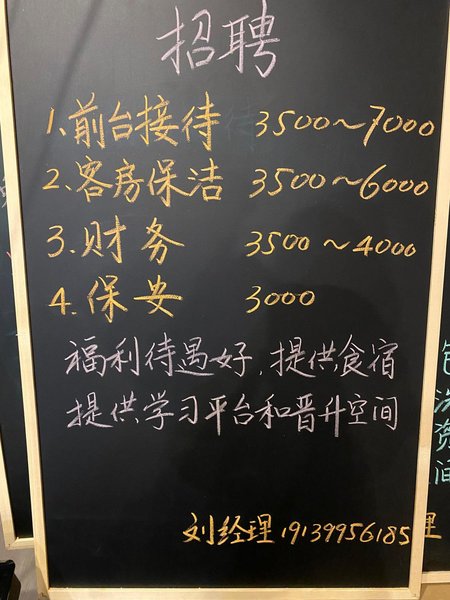 招聘
1、前台接待 3500～7000
2、客房保洁 3500～6000
3、财务 3500～4000
4、保安 3000
福利待遇好，提供食宿
提供学习平台和晋升空间
刘经理 19139956185